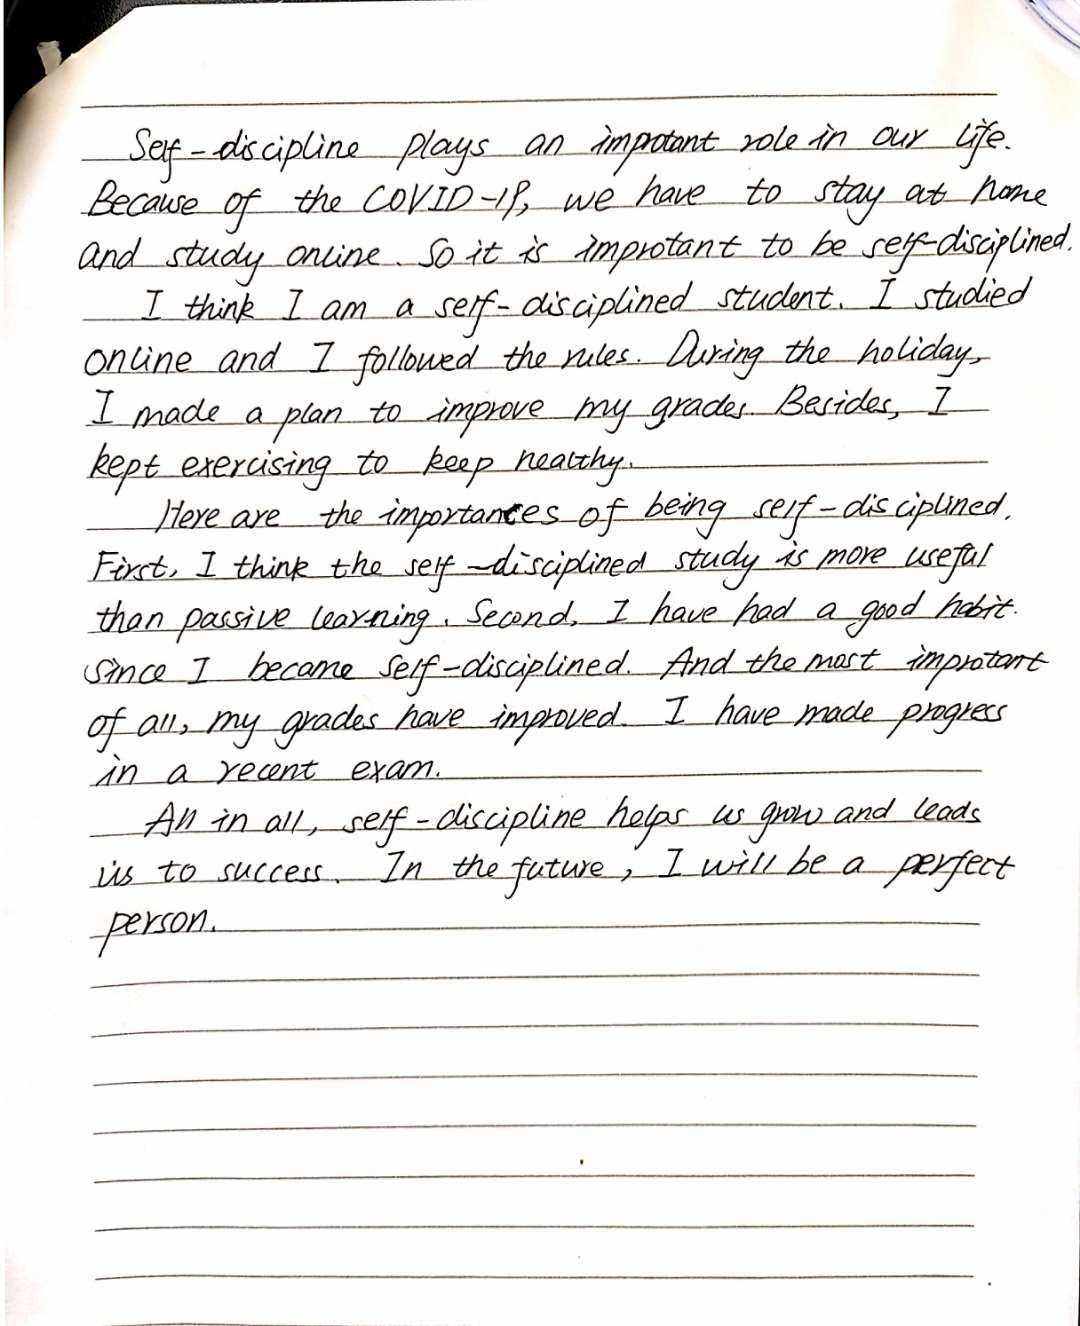 Self-discipline plays an improtant role in our life.
Because of the COVID-19, we have to stay at home
and study online. So it is improtant to be self-disciplined.
I think I am a self-disciplined student. I studied
online and I followed the rules. During the holiday,
I made a plan to improve my grades. Besides, I
kept exercising to keep healthy.
Here are the importances of being self-disciplined.
First, I think the self-disciplined study is more useful
than passive learning. Second, I have had a good habit.
since I became self-disciplined. And the most improtant
of all, my grades have improved. I have made progress
in a recent exam.
All in all, self-discipline helps us grow and leads
us to success. In the future, I will be a perfect
person.